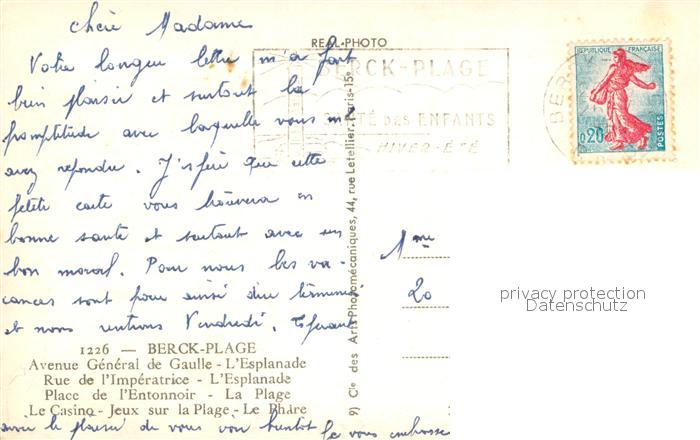 chère Madame
Votre longue lettre m'a fait
bien plaisir et surtout la
promptitude avec laquelle vous m'
avez repondu. J'espère que cette
petite carte vous trouvera en
bonne santé et surtout avec un
bon moral. Pour nous les va-
cances sont pour ainsi dire terminé
et nous rentrons Vendredi. Espérant
avoir le plaisir de vous voir bientôt je vous embrasse
REAL-PHOTO
BERCK-PLAGE
SANTÉ DES ENFANTS
HIVER-ÉTÉ
BERCK
REPUBLIQUE FRANÇAISE
0,20
POSTES
9) Cie des Arts Photomécaniques, 44, rue Letellier, Paris-15e
Mme
20
privacy protection
Datenschutz
1226 — BERCK-PLAGE
Avenue Général de Gaulle - L'Esplanade
Rue de l'Impératrice - L'Esplanade
Place de l'Entonnoir - La Plage
Le Casino - Jeux sur la Plage - Le Phare